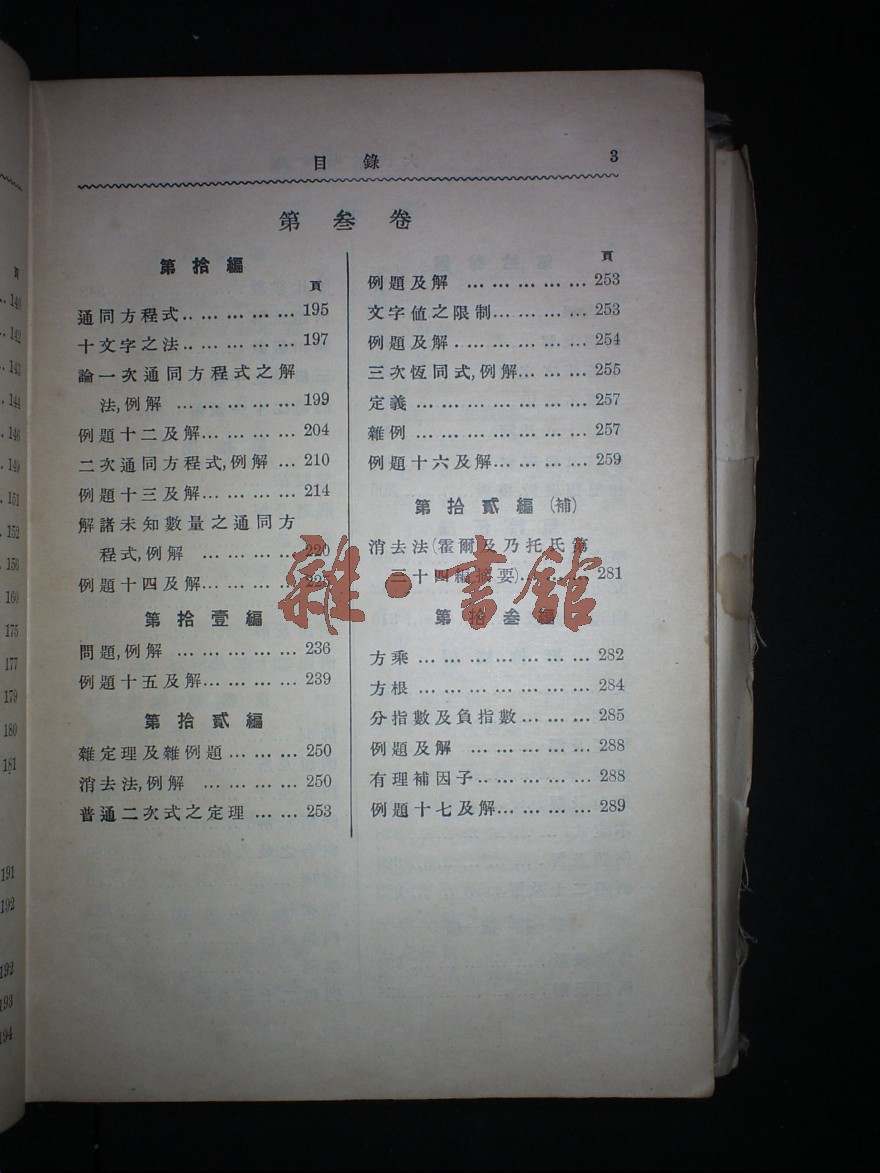 目錄 3
第叁卷
第拾編
頁
通同方程式.. … … … … 195
十文字之法.. … … … … 197
論一次通同方程式之解
法,例解 … … … … … 199
例題十二及解… … … … 204
二次通同方程式,例解 … 210
例題十三及解… … … … 214
解諸未知數量之通同方
程式,例解 … … … … 220
例題十四及解… … …
第拾壹編
問題,例解 … … … … … 236
例題十五及解… … … … 239
第拾貳編
雜定理及雜例題 … … … 250
消去法,例解 … … … … 250
普通二次式之定理 … … 253
頁
例題及解 … … … … … 253
文字値之限制… … … … 253
例題及解 . … … … … … 254
三次恆同式,例解… … … 255
定義 … … … … … … … 257
雜例 … … … … … … … 257
例題十六及解… … … … 259
第拾貳編(補)
消去法(霍爾及乃托氏第
三十四編摘要)… … … 281
第拾叁編
方乘 … … … … … … … 282
方根 … … … … … … … 284
分指數及負指數 … … … 285
例題及解 … … … … … 288
有理補因子.. … … … … 288
例題十七及解… … … … 289
雜·書館
頁
140
142
143
144
146
149
151
152
156
160
175
177
179
180
181
191
192
192
193
194